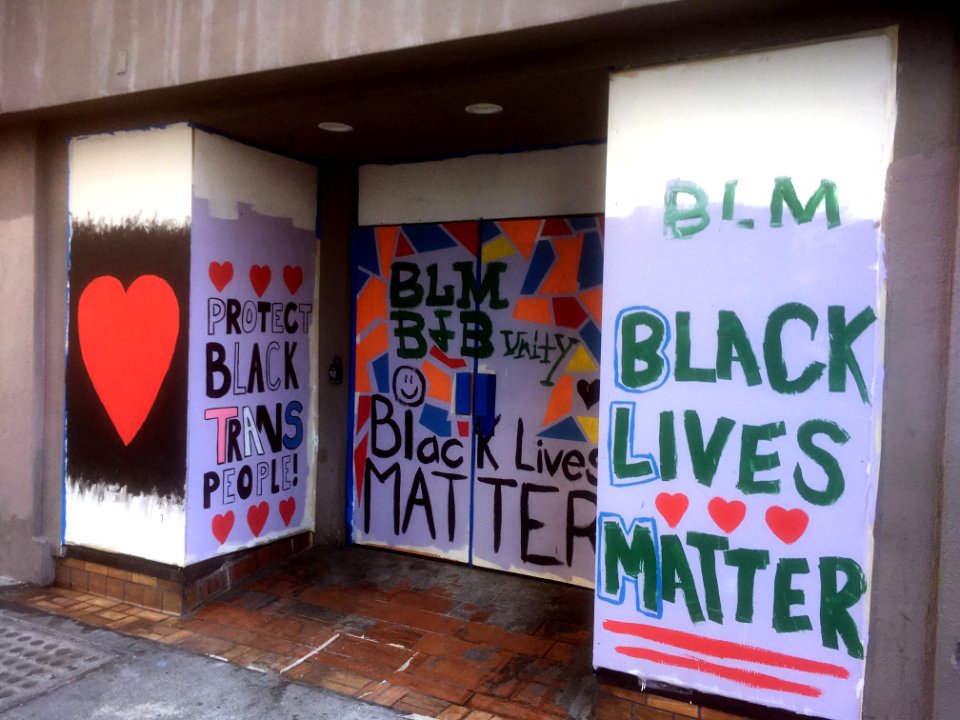 PROTECT
BLACK
TRANS
PEOPLE!
BLM
B&B
UNITY
Black Lives
MATTER
BLM
BLACK
LIVES
MATTER